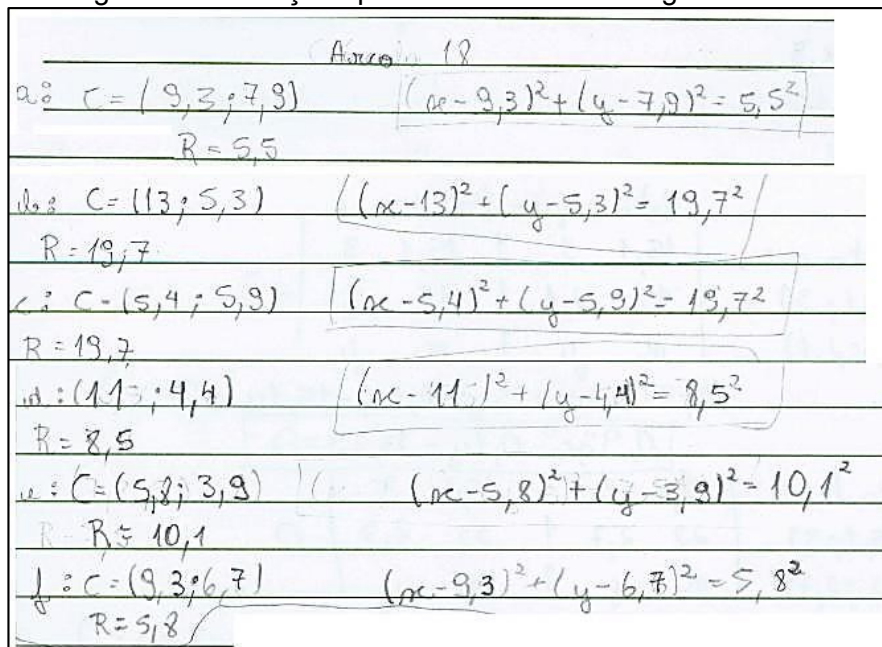 Arco 18
a: C = (9,3 ; 7,9) (x - 9,3)² + (y - 7,9)² = 5,5²
R = 5,5
b: C = (13 ; 5,3) (x - 13)² + (y - 5,3)² = 19,7²
R = 19,7
c: C = (5,4 ; 5,9) (x - 5,4)² + (y - 5,9)² = 19,7²
R = 19,7
d : (11 ; 4,4) (x - 11)² + (y - 4,4)² = 8,5²
R = 8,5
e : C = (5,8 ; 3,9) (x - 5,8)² + (y - 3,9)² = 10,1²
R = 10,1
f : C = (9,3 ; 6,7) (x - 9,3)² + (y - 6,7)² = 5,8²
R = 5,8